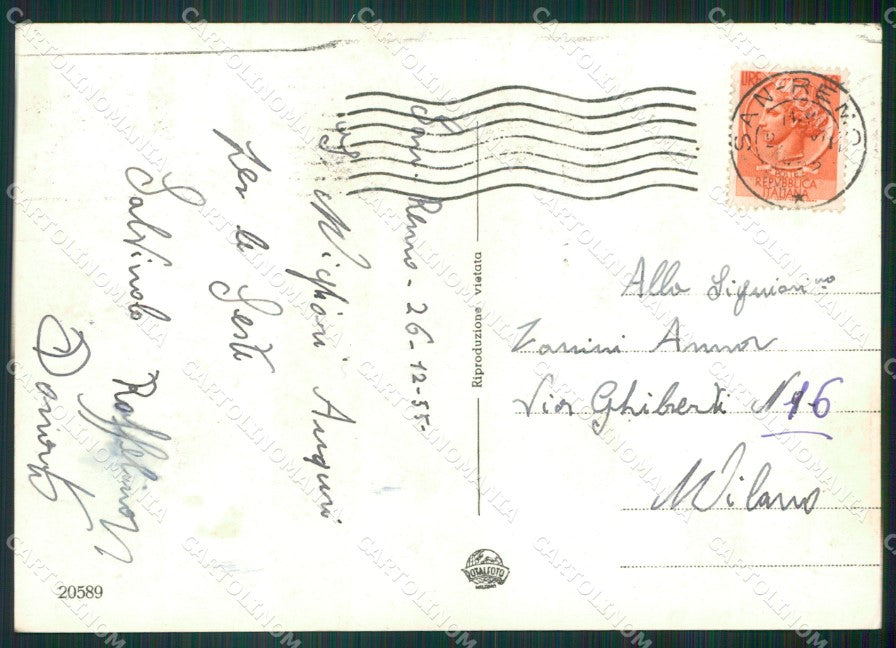 San. Remo - 26-12-55-
Migliori Auguri
per le Feste
Raffaella
Daniela
Riproduzione vietata
SAN REMO
LIRE
REPUBBLICA
ITALIANA
Alla Signorina
Zanini Anna
Via Ghiberti N 16
Milano
ROTALFOTO
MILANO
20589
CARTOLINOMANIA